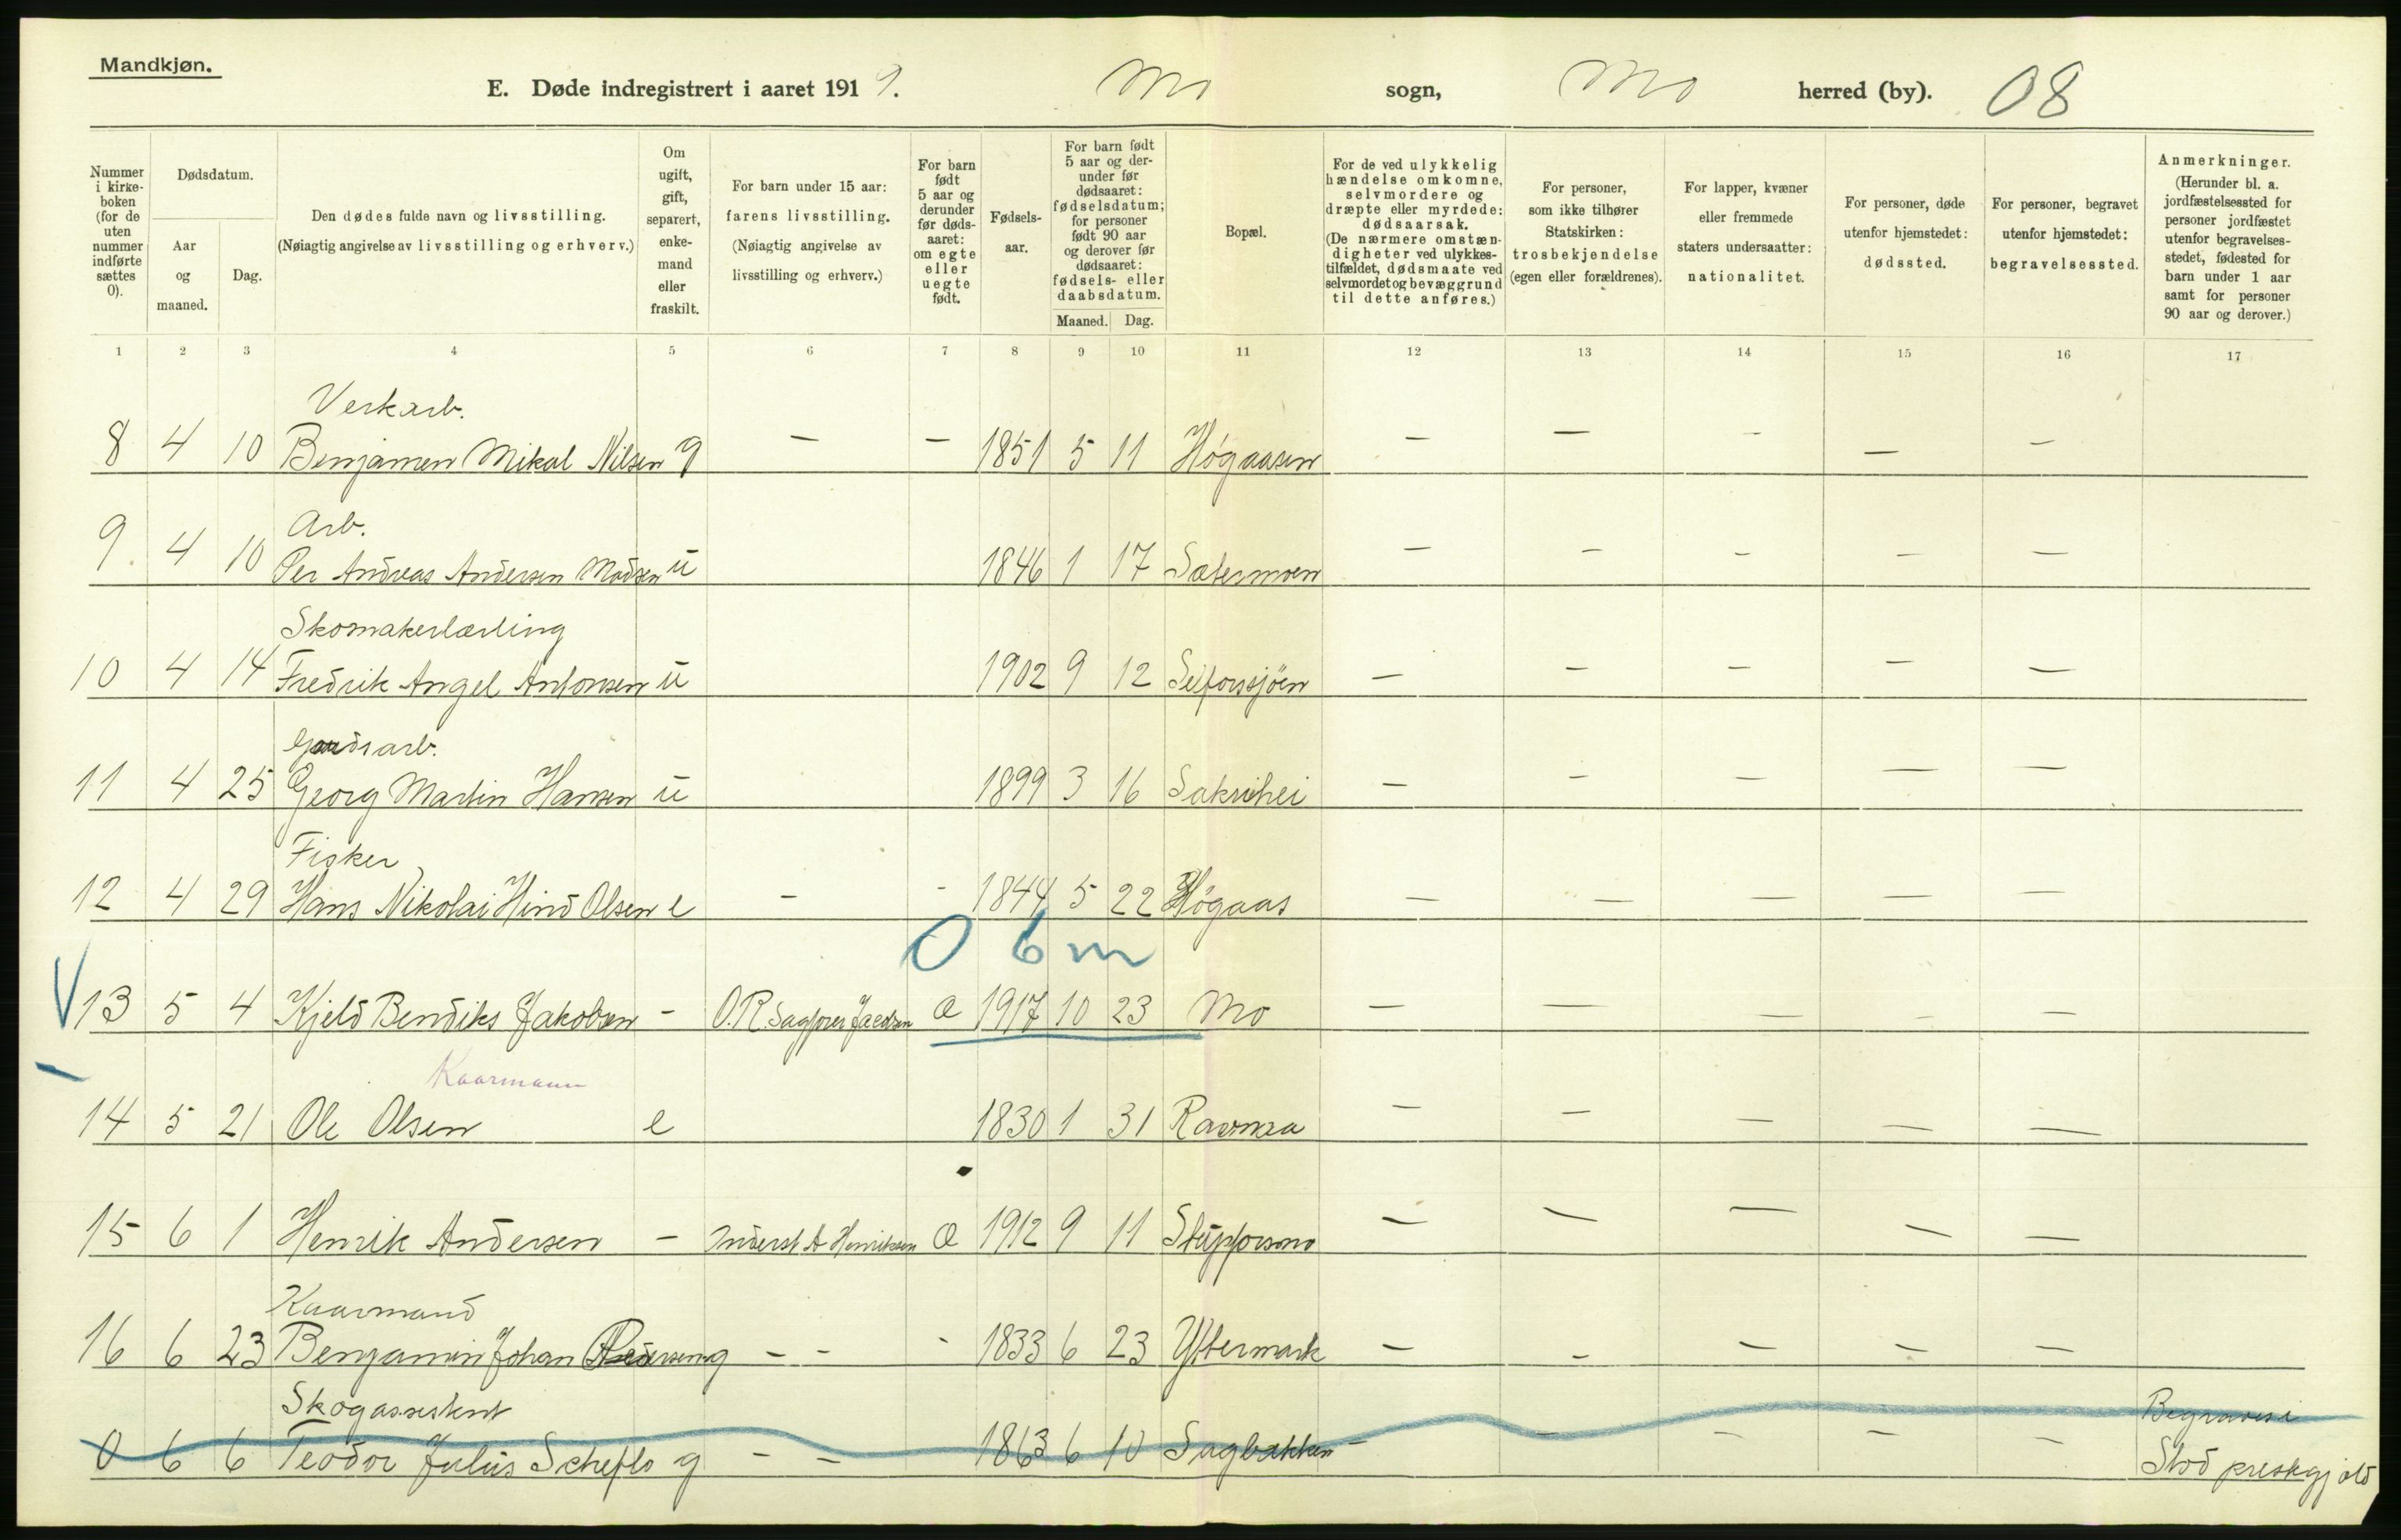 Mandkjøn.
E. Døde indregistrert i aaret 1919. Mo sogn, Mo herred (by). 08
Nummer i kirke-boken (for de uten nummer indførte sættes 0).
Dødsdatum.
Aar og maaned.
Dag.
Den dødes fulde navn og livsstilling.
(Nøiagtig angivelse av livsstilling og erhverv.)
Om ugift, gift, separert, enke-mand eller fraskilt.
For barn under 15 aar:
farens livsstilling.
(Nøiagtig angivelse av
livsstilling og erhverv.)
For barn født 5 aar og derunder før døds-aaret: om egte eller uegte født.
Fødsels-aar.
For barn født 5 aar og der-under før dødsaaret: fødselsdatum; for personer født 90 aar og derover før dødsaaret: fødsels- eller daabsdatum.
Maaned. Dag.
Bopæl.
For de ved ulykkelig hændelse omkomne, selvmordere og dræpte eller myrdede: dødsaarsak. (De nærmere omstæn-digheter ved ulykkes-tilfældet, dødsmaate ved selvmordet og bevæggrund til dette anføres.)
For personer, som ikke tilhører Statskirken: trosbekjendelse (egen eller forældrenes).
For lapper, kvæner eller fremmede staters undersaatter: nationalitet.
For personer, døde utenfor hjemstedet: dødssted.
For personer, begravet utenfor hjemstedet: begravelsessted.
Anmerkninger. (Herunder bl. a. jordfæstelsessted for personer jordfæstet utenfor begravelses-stedet, fødested for barn under 1 aar samt for personer 90 aar og derover.)
1 2 3 4 5 6 7 8 9 10 11 12 13 14 15 16 17
Verkarb.
8 4 10 Benjamen Mikal Nilsen g — — 1851 5 11 Høgaasen — — — — —
Arb.
9 4 10 Per Andreas Andersen Madsen u 1846 1 17 Sætermoen — — — — —
Skomakerlærling
10 4 14 Fredrik Angel Antonsen u 1902 9 12 Selforssjøen — — — — —
Gaardsarb.
11 4 25 Georg Martin Hansen u 1899 3 16 Saksihei — — — — —
Fisker
12 4 29 Hans Nikolai Hind Olsen e - - 1844 5 22 Høgaas — — — — —
0 6 m
V 13 5 4 Kjeld Bendiks Jakobsen - O.R. Sagfører Jacobsen Æ 1917 10 23 Mo — — — — —
Kaarmann
14 5 21 Ole Olsen e 1830 1 31 Ravnaa — — — — —
15 6 1 Henrik Andersen — Inderst A Henriksen Æ 1912 9 11 Stupforsmo — — — — —
Kaarmand
16 6 23 Benjamin Johan Pedersen g - - - 1833 6 23 Yttermark — — — — —
Skogassistent Begraves i
0 6 6 Teodor Julius Scheflo g - - 1863 6 10 Sagbakken — — — — — Stod prestegjeld